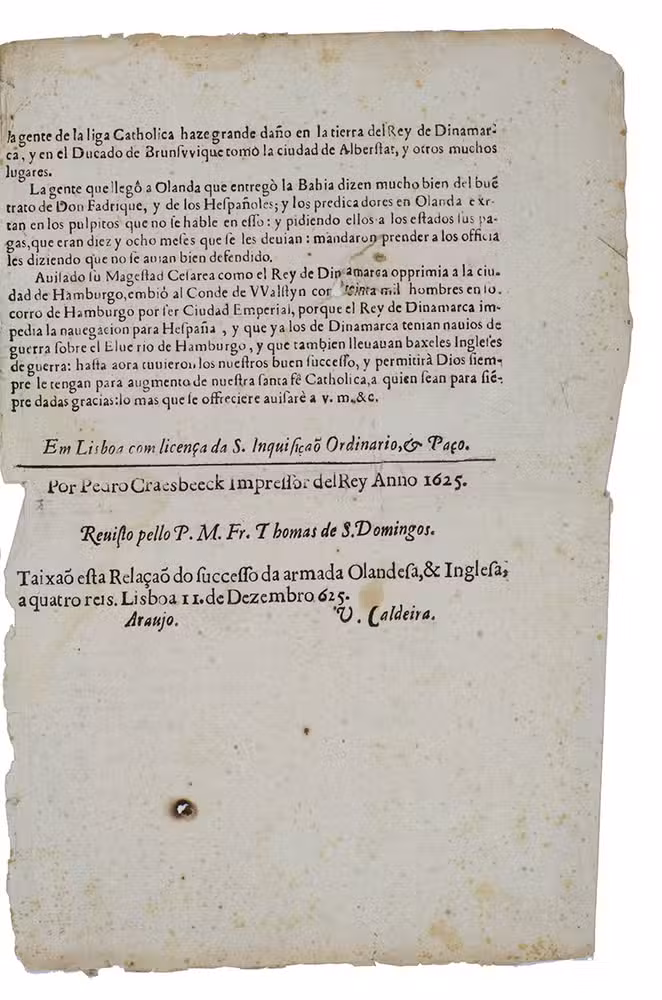 la gente de la liga Catholica haze grande daño en la tierra del Rey de Dinamar-
ca, y en el Ducado de Brunſvvique tomò la ciudad de Alberſtat, y otros muchos
lugares.
La gente que llegô a Olanda que entregò la Bahia dizen mucho bien del buē
trato de Don Fadrique, y de los Heſpañoles; y los predicadores en Olanda exr-
tan en los pulpitos que no ſe hable en eſſo: y pidiendo ellos a los eſtados ſus pa-
gas, que eran diez y ocho meſes que ſe les deuian: mandaron prender a los officia
les diziendo que no ſe auian bien defendido.
Auiſado ſu Mageſtad Ceſarea como el Rey de Dinamarca opprimia a la ciu-
dad de Hamburgo, embiò al Conde de VValſtyn con mil hombres en ſo-
corro de Hamburgo por ſer Ciudad Emperial, porque el Rey de Dinamarca im-
pedia la nauegacion para Heſpaña, y que ya los de Dinamarca tenian nauios de
guerra ſobre el Elue rio de Hamburgo, y que tambien lleuauan baxeles Ingleſes
de guerra: haſta aora tuuieron los nueſtros buen ſucceſſo, y permitirà Dios ſiem-
pre le tengan para augmento de nueſtra ſanta fê Catholica, a quien ſean para ſiē-
pre dadas gracias: lo mas que ſe offreciere auiſarè a v. m. &c.
Em Lisboa com licença da S. Inquiſiçaõ Ordinario, & Paço.
Por Pedro Craesbeeck Impreſſor del Rey Anno 1625.
Reuiſto pello P. M. Fr. Thomas de S. Domingos.
Taixaõ eſta Relaçaõ do ſucceſſo da armada Olandeſa, & Ingleſa,
a quatro reis. Lisboa 11. de Dezembro 625.
Araujo. V. Caldeira.